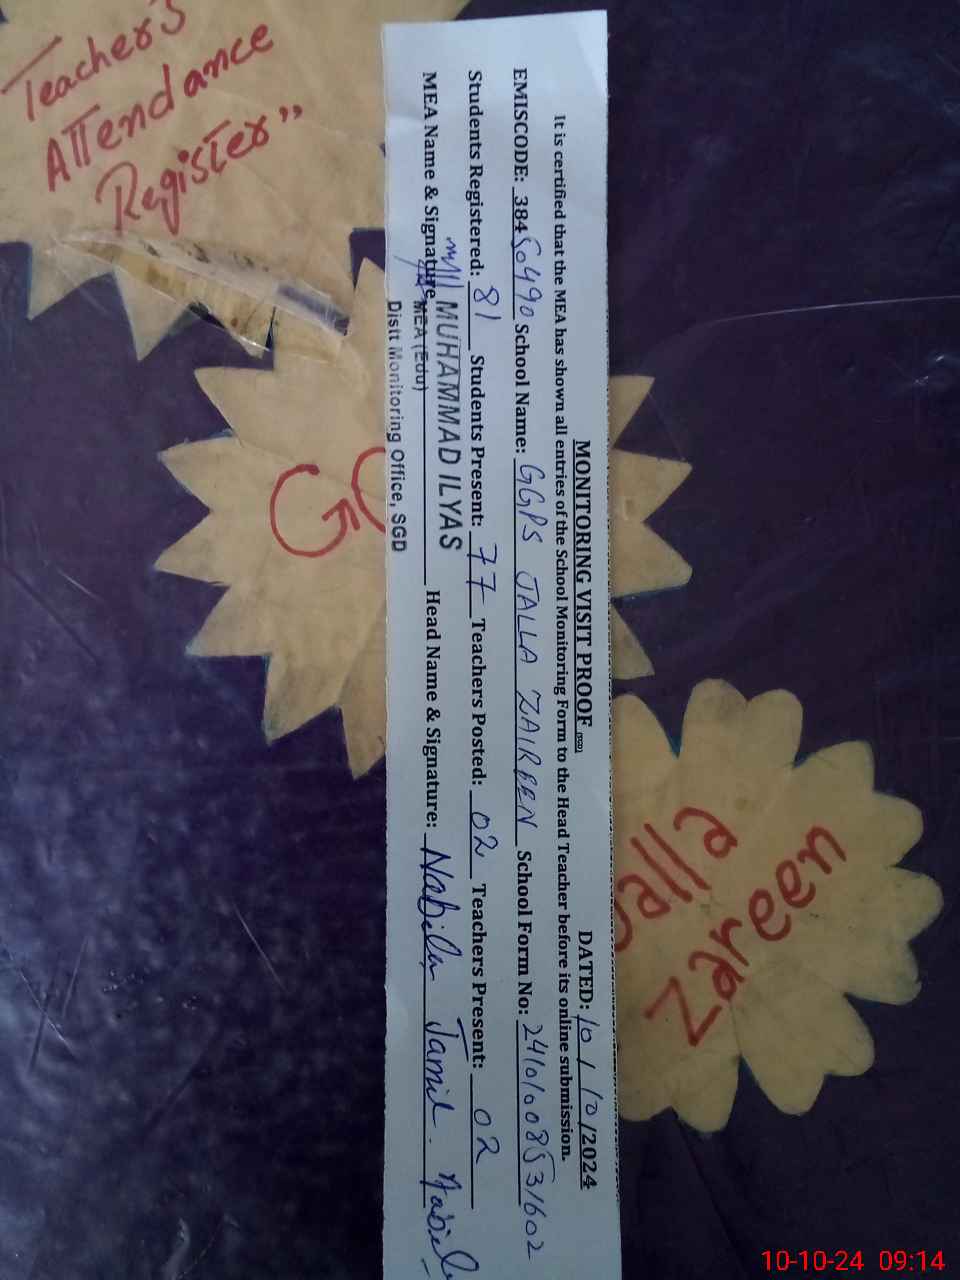 Teacher's
Attendance
Register"
MONITORING VISIT PROOF DATED: 10/10/2024
It is certified that the MEA has shown all entries of the School Monitoring Form to the Head Teacher before its online submission.
EMISCODE: 38450490 School Name: GGPS JALLA ZAIREEN School Form No:
Students Registered: 81 Students Present: 77 Teachers Posted: 02 Teachers Present: 02
MEA Name & Signature MUHAMMAD ILYAS Head Name & Signature: Nabila Jamil.
MEA (Edu)
Distt Monitoring Office, SGD
G
Jalla
Zareen
10-10-24 09:14